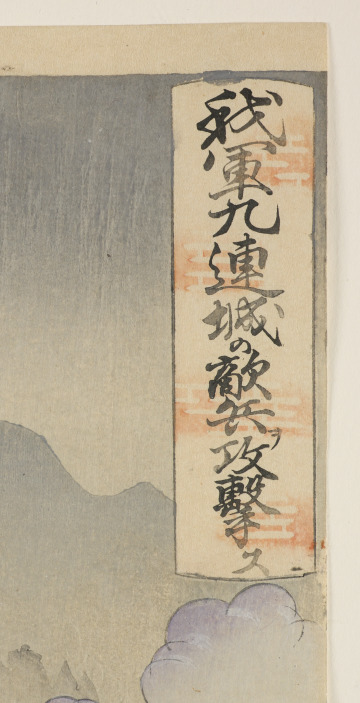 我軍九連城の敵兵ヲ攻撃ス